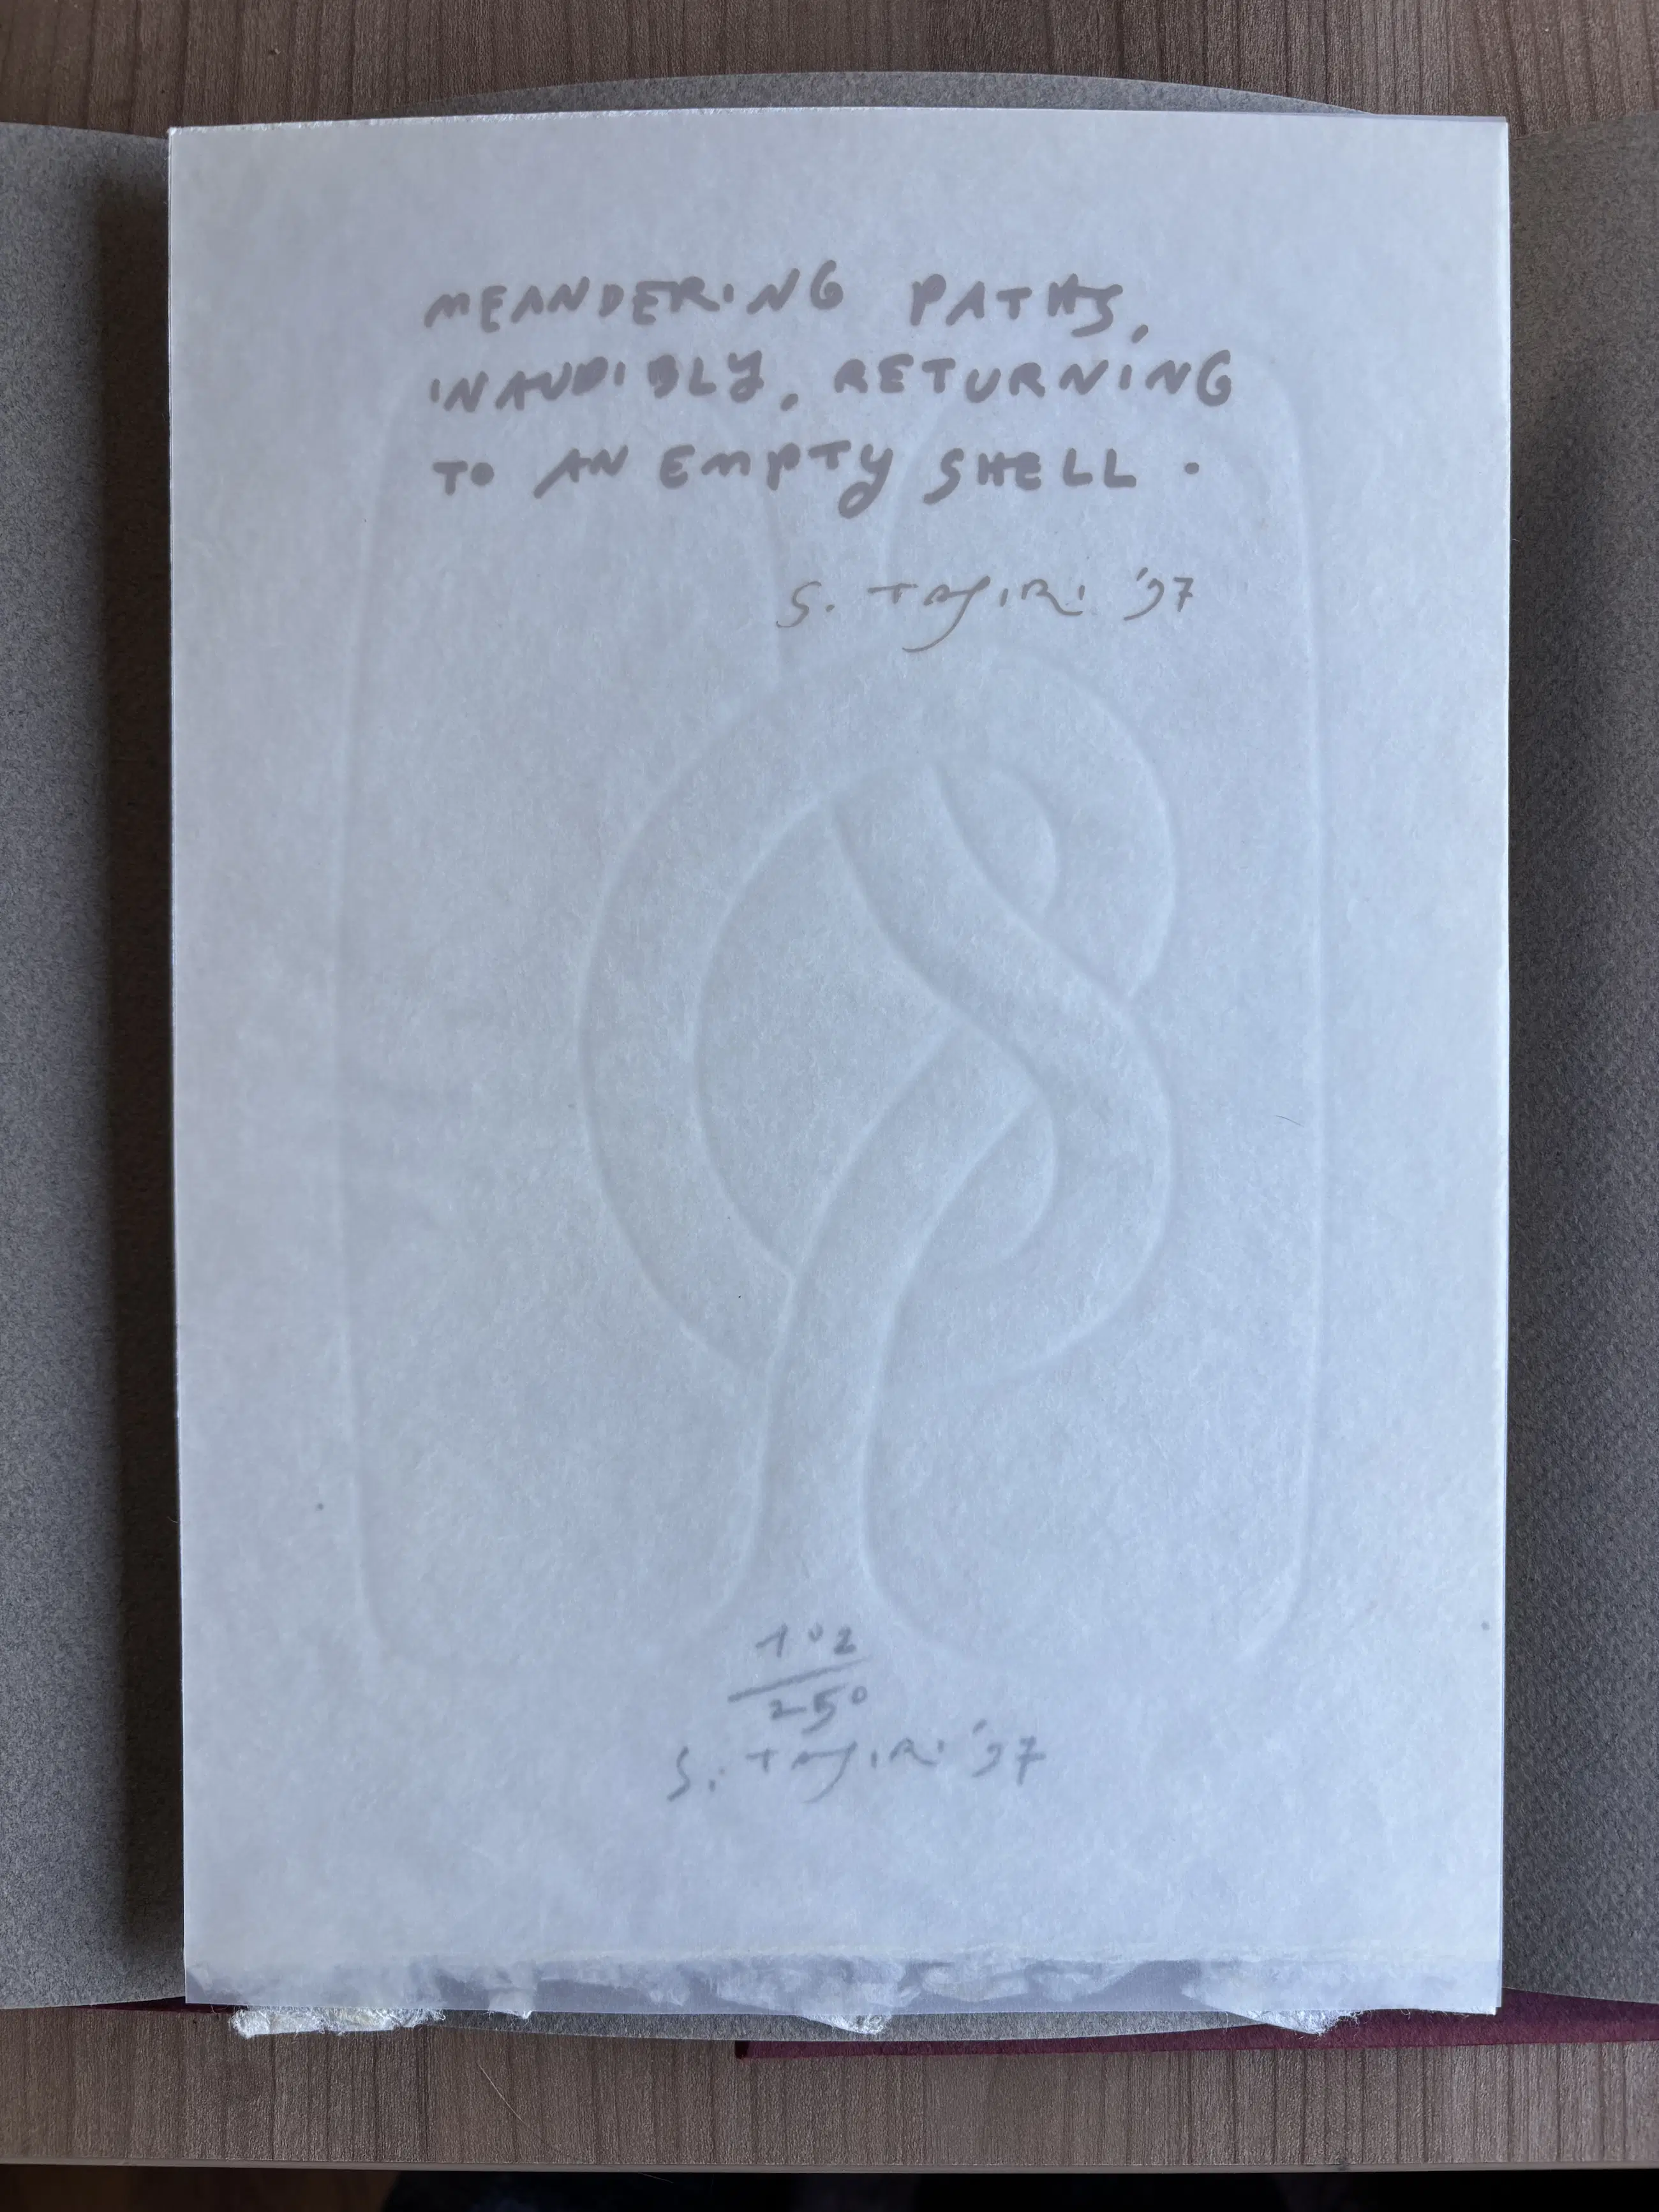 MEANDERING PATHS,
INAUDIBLY, RETURNING
TO AN EMPTY SHELL.
S. TAJIRI '97
102
250
S. TAJIRI '97